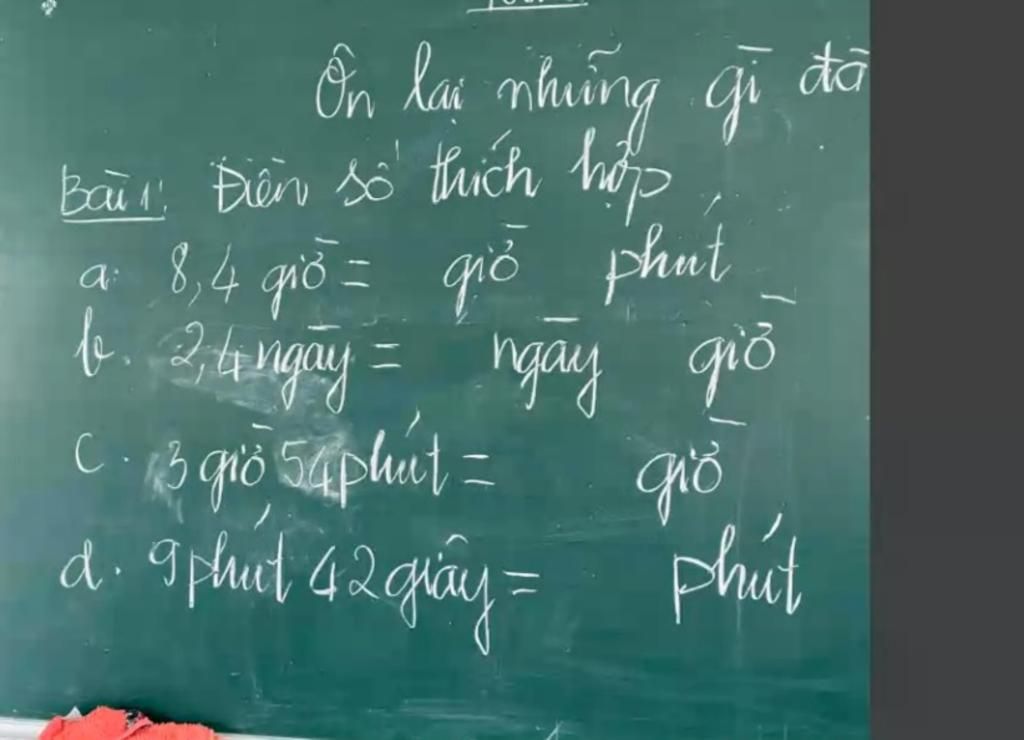 Ôn lại những gì đã
Bài 1: Điền số thích hợp
a. 8,4 giờ = giờ phút
b. 2,4 ngày = ngày giờ
c. 3 giờ 54 phút = giờ
d. 9 phút 42 giây = phút